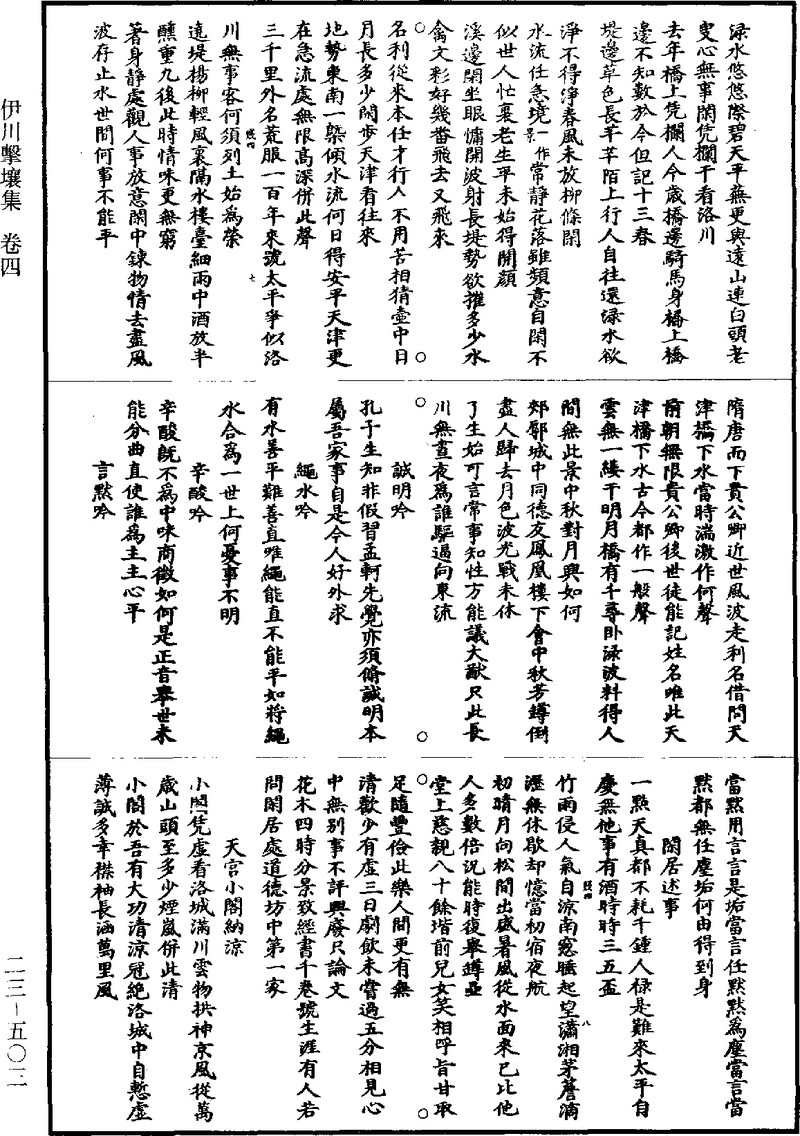 伊川擊壤集　卷四
淥水悠悠際碧天平蕪更與遠山連白頭老
叟心無事閑凭欄干看洛川
去年橋上凭欄人今歲橋邊騎馬身橋上橋
邊不知數於今但記十三春
堤邊草色長芊芊陌上行人自往還淥水欲
淨不得淨春風未放柳條閑
水流任急境一作景常靜花落雖頻意自閑不
似世人忙裏老生平未始得開顏
溪邊閑坐眼慵開波射長堤勢欲摧多少水
禽文彩好幾番飛去又飛來
○　○
名利從來本任才行人不用苦相猜壺中日
月長多少閑步天津看往來
地勢東南一槩傾水流何日得安平天津更
在急流處無限高深併此聲
三千里外名荒服一百年來號太平爭似洛
川無事客何須列土始為榮
遠堤楊柳輕風裏隔水樓臺細雨中酒放半
醺重九後此時情味更無窮
著身靜處觀人事放意閑中鍊物情去盡風
波存止水世間何事不能平
隋唐而下貴公卿近世風波走利名借問天
津橋下水當時湍激作何聲
前朝無限貴公卿後世徒能記姓名唯此天
津橋下水古今都作一般聲
雲無一縷干明月橋有千尋臥淥波料得人
間無此景中秋對月興如何
郊鄏城中同德友鳳凰樓下會中秋芳罇倒
盡人歸去月色波光戰未休
了生始可言常事知性方能議大猷只此長
川無晝夜為誰驅逼向東流
○　○
誠明吟
孔子生知非假習孟軻先覺亦須脩誠明本
屬吾家事自是今人好外求
繩水吟
有水善平難善直唯繩能直不能平如將繩
水合為一世上何憂事不明
辛酸吟
辛酸既不為中味商徵如何是正音舉世未
能分曲直使誰為主主心平
言默吟
當默用言言是垢當言任默默為塵當言當
默都無任塵垢何由得到身
閑居述事
一點天真都不耗千鍾人祿是難來太平自
慶無他事有酒時時三五盃
竹雨侵人氣自涼南窓睡起望瀟湘茅簷滴
瀝無休歇却憶當初宿夜航
初晴月向松間出盛暑風從水面來已比他
人多數倍況能時復舉罇罍
堂上慈親八十餘堦前兒女笑相呼旨甘取
足隨豐儉此樂人間更有無
○　○
清歡少有虛三日劇飲未嘗過五分相見心
中無別事不評興廢只論文
花木四時分景致經書千卷號生涯有人若
問閑居處道德坊中第一家
天宮小閣納涼
小閣凭虛看洛城滿川雲物拱神京風從萬
歲山頭至多少煙嵐併此清
小閣於吾有大功清涼冠絶洛城中自慙虛
薄誠多幸襟袖長涵萬里風
二三－五〇二